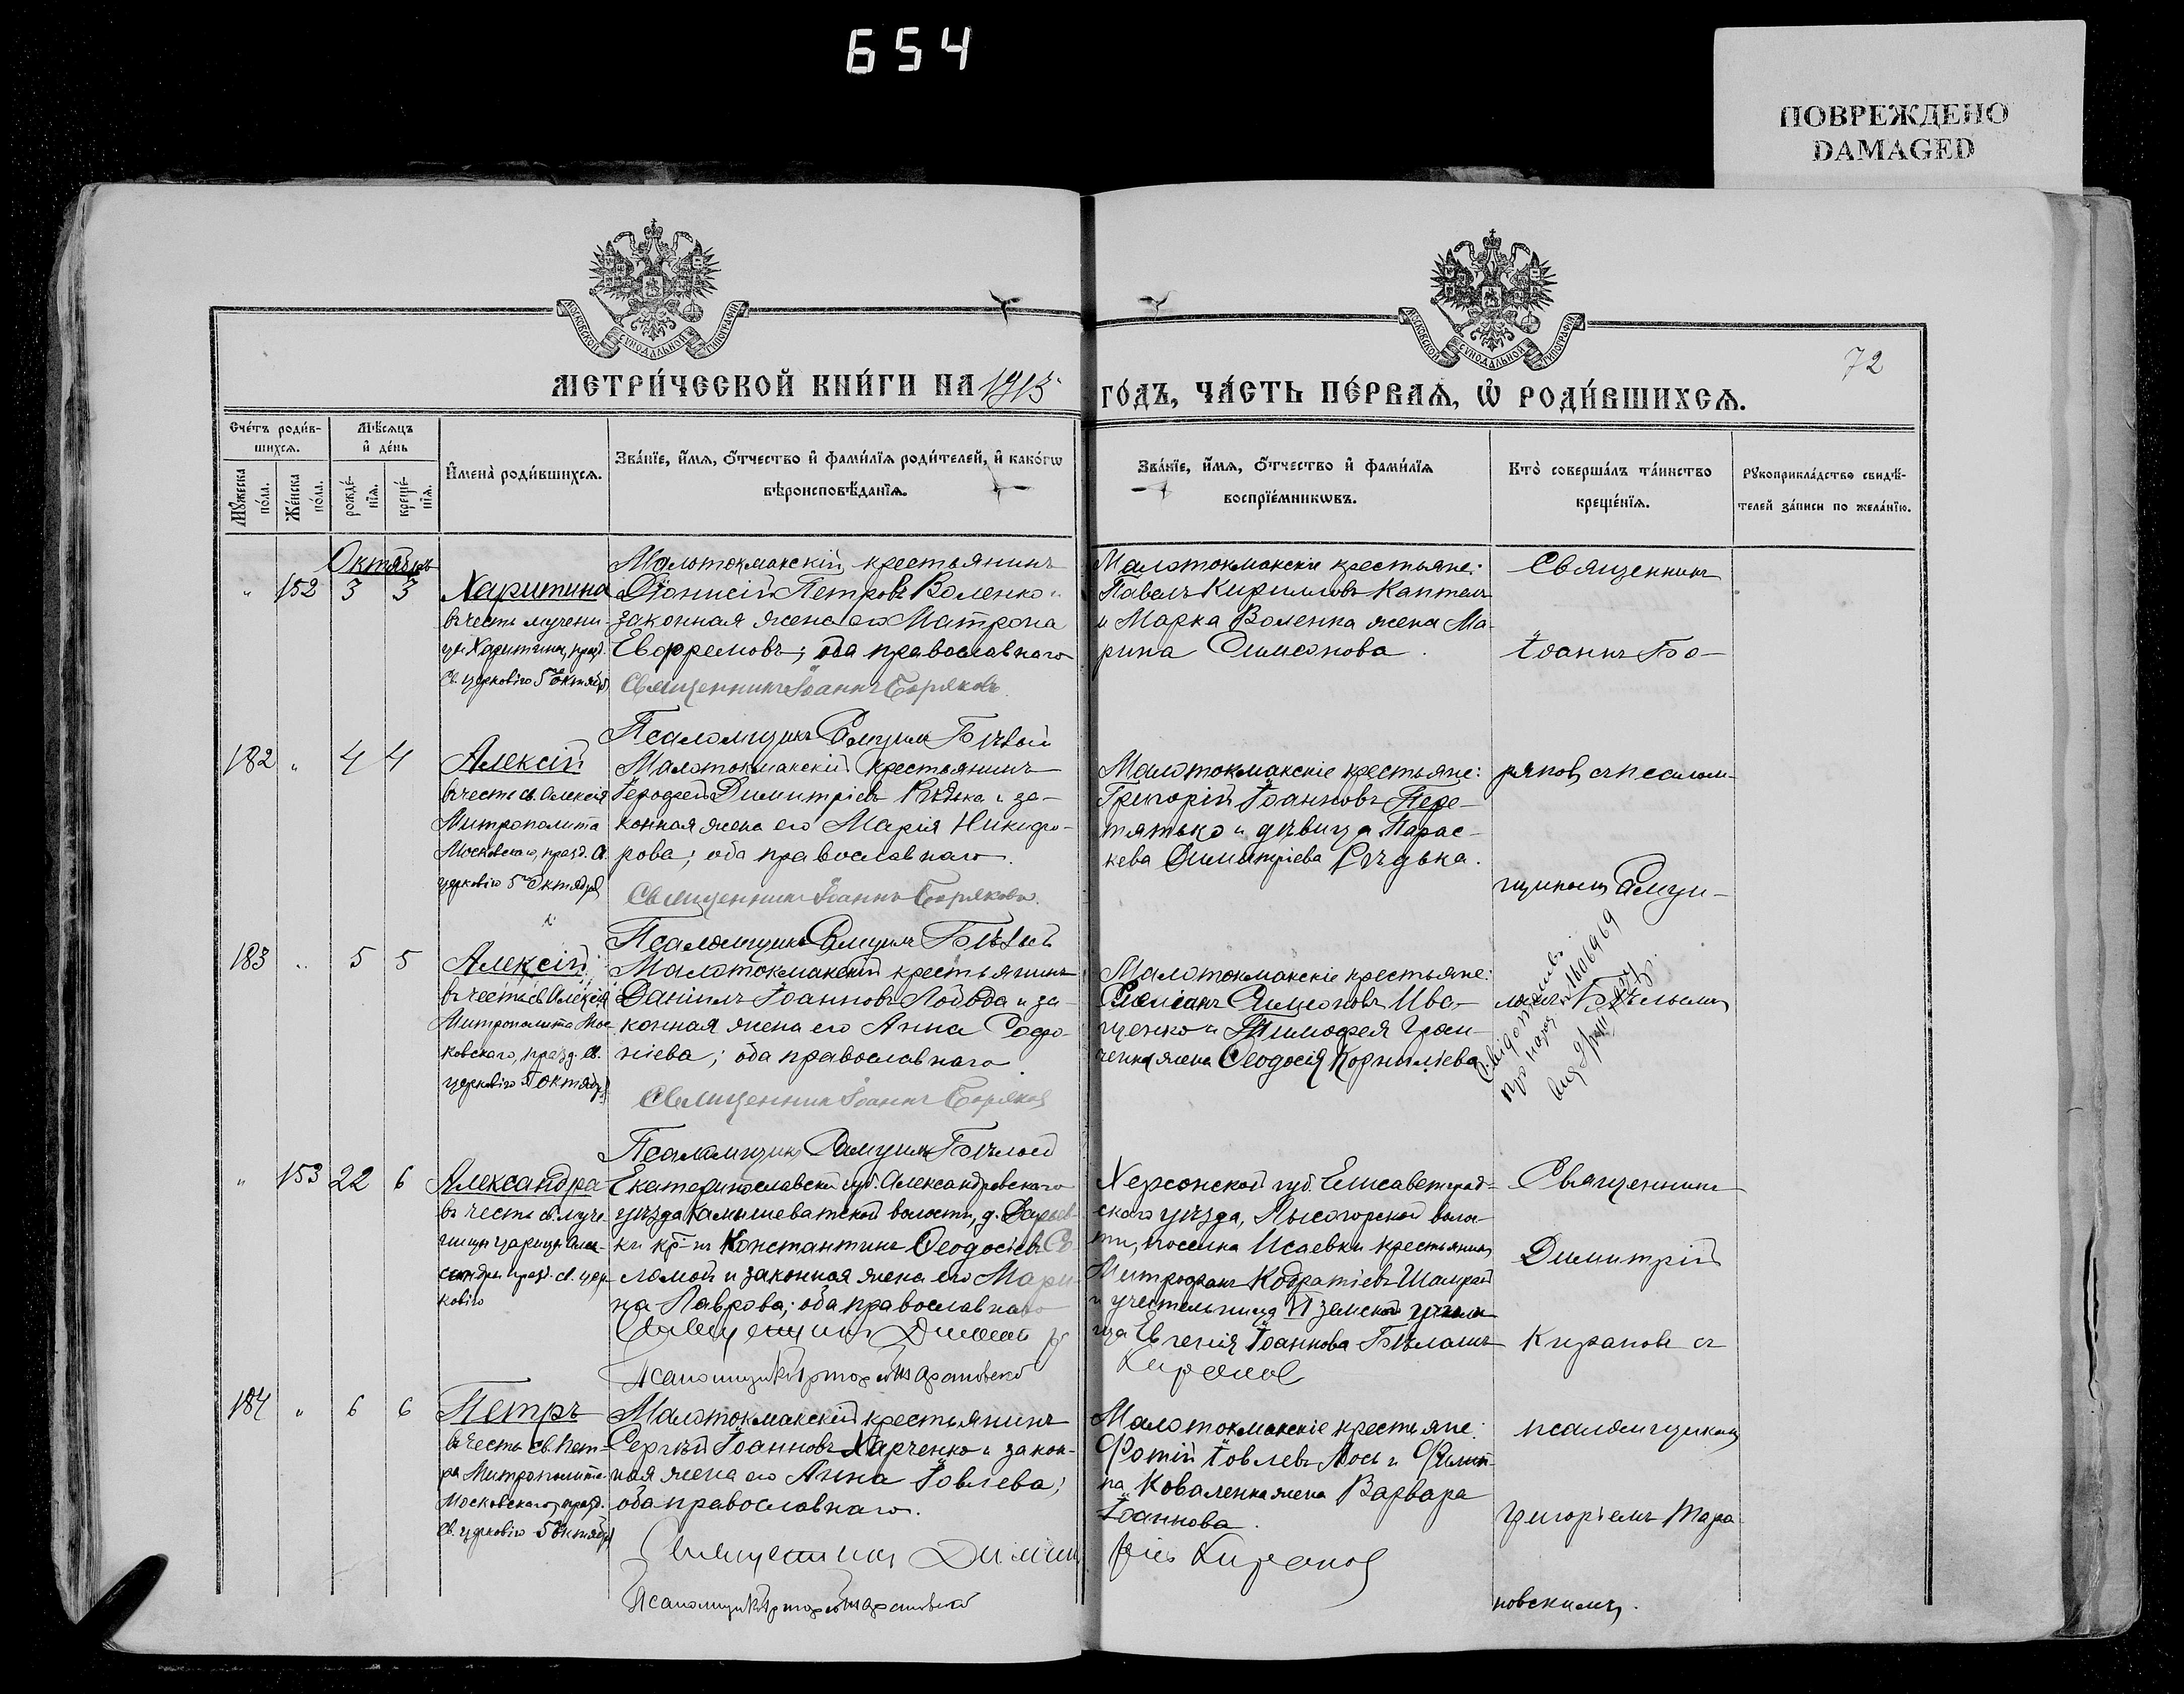 654
ПОВРЕЖДЕНО
DAMAGED
МОСКОВСКОЙ СѴНОДАЛЬНОЙ ТИПОГРАФІИ
МОСКОВСКОЙ СѴНОДАЛЬНОЙ ТИПОГРАФІИ
72
МЕТРИ́ЧЕСКОЙ КНИ́ГИ НА 1913
ГО́ДЪ, ЧА́СТЬ ПЕ́РВАѦ, Ѡ҆ РОДИ́ВШИХСѦ.
Сче́тъ роди́в-
шихсѧ.
Мꙋ́жеска по́ла.
Же́нска по́ла.
Мѣ́сѧцъ
и҆ де́нь
рожде́-
нїѧ.
креще́-
нїѧ.
И҆мена̀ роди́вшихсѧ.
Зва́нїе, и҆́мѧ, ѻ҆́тчество и҆ фами́лїѧ роди́телей, и҆ како́гѡ
вѣроисповѣ́данїѧ.
Зва́нїе, и҆́мѧ, ѻ҆́тчество и҆ фами́лїѧ
воспрїе́мникѡвъ.
Кто̀ соверша́лъ та́инство
креще́нїѧ.
Рꙋкоприкла́дство свидѣ́-
телей за́писи по жела́нїю.
Октябрь
" 152 3 3
Харитина
въ честь мучени-
цы Харитины, празд.
св. церковію 5 октября
Малотокмакскій крестьянинъ
Діонисій Петровъ Воленко и
законная жена его Матрона
Евфремовъ; оба православнаго
Священникъ Іоаннъ Боряковъ.
Псаломщикъ Бѣлый
Малотокмакскіе крестьяне:
Павелъ Кирилловъ Каптелъ
и Марка Воленка жена Ма-
рина Симеонова.
Священникъ
Іоаннъ Бо-
182 " 4 4
Алексій
въ честь св. Алексія
Митрополита
Московскаго, празд. св.
церковію 5 октября
Малотокмакскій крестьянинъ
Іерофей Димитріевъ Рѣдька и за-
конная жена его Марія Никифо-
рова; оба православнаго.
Священникъ Іоаннъ Боряковъ.
Псаломщикъ Бѣлый
Малотокмакскіе крестьяне:
Григорій Іоанновъ Пере-
тятько и дѣвица Парас-
кева Димитріева Рѣдька.
ряковъ съ псалом-
щикомъ
183 " 5 5
Алексій
въ честь св. Алексія
Митрополита Мос-
ковскаго, празд. св.
церковію 5 октября
Малотокмакскій крестьянинъ
Даніилъ Іоанновъ Лобода и за-
конная жена его Анна Софро-
ніева; оба православнаго.
Священникъ Іоаннъ Боряковъ
Псаломщикъ Бѣлый
Малотокмакскіе крестьяне:
Симеоновъ Ива-
щенко и Тимофея Гром-
ченка жена Ѳеодосія Корниліева
Бѣлымъ
" 153 22 6
Александра
въ честь св. муче-
ницы царицы Алек-
сандры празд. св. цер-
ковію
Екатеринославской губ. Александровскаго
уѣзда Камышеватской волости, д. Дарьев-
ки кр-нъ Константинъ Ѳеодосіевъ
ломой и законная жена его Мари-
на Лаврова; оба православнаго
Священникъ Димитрій
Псаломщикъ Григорій Тарановскій
Херсонской губ. Елисаветград-
скаго уѣзда, Лысогорской волос-
ти, поселка Исаевки крестьянинъ
Митрофанъ Кодратіевъ Шамрай
и учительница земскаго училища
Евгенія Іоаннова
Киранов
Священникъ
Димитрій
Кирановъ съ
184 " 6 6
Петръ
въ честь св. Пет-
ра Митрополита
Московскаго, празд.
св. церковію 5 октября
Малотокмакскій крестьянинъ
Сергѣй Іоанновъ Харченко и закон-
ная жена его Анна Іовлева;
оба православнаго.
Священникъ Димит
Псаломщикъ Григорій Тарановскій
Малотокмакскіе крестьяне:
Фотій Іовлевъ Лось и Филип-
па Коваленка жена Варвара
Іоаннова.
рій Киранов
псаломщикомъ
Григоріемъ Тара-
новскимъ.